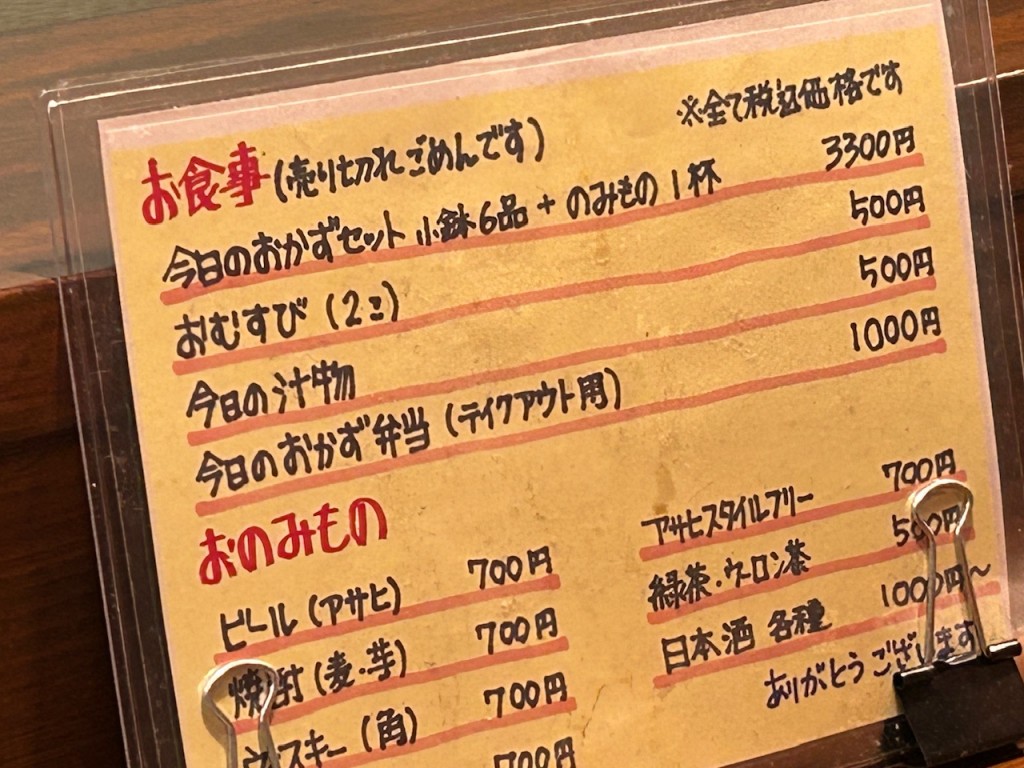 ※全て税込価格です
お食事(売り切れごめんです)
今日のおかずセット 小鉢6品+のみもの1杯 3300円
おむすび(2コ) 500円
今日の汁物 500円
今日のおかず弁当(テイクアウト用) 1000円
おのみもの
ビール(アサヒ) 700円
焼酎(麦・芋) 700円
ウイスキー(角) 700円
700円
アサヒスタイルフリー 700円
緑茶・ウーロン茶 500円
日本酒 各種 1000円〜
ありがとうございます